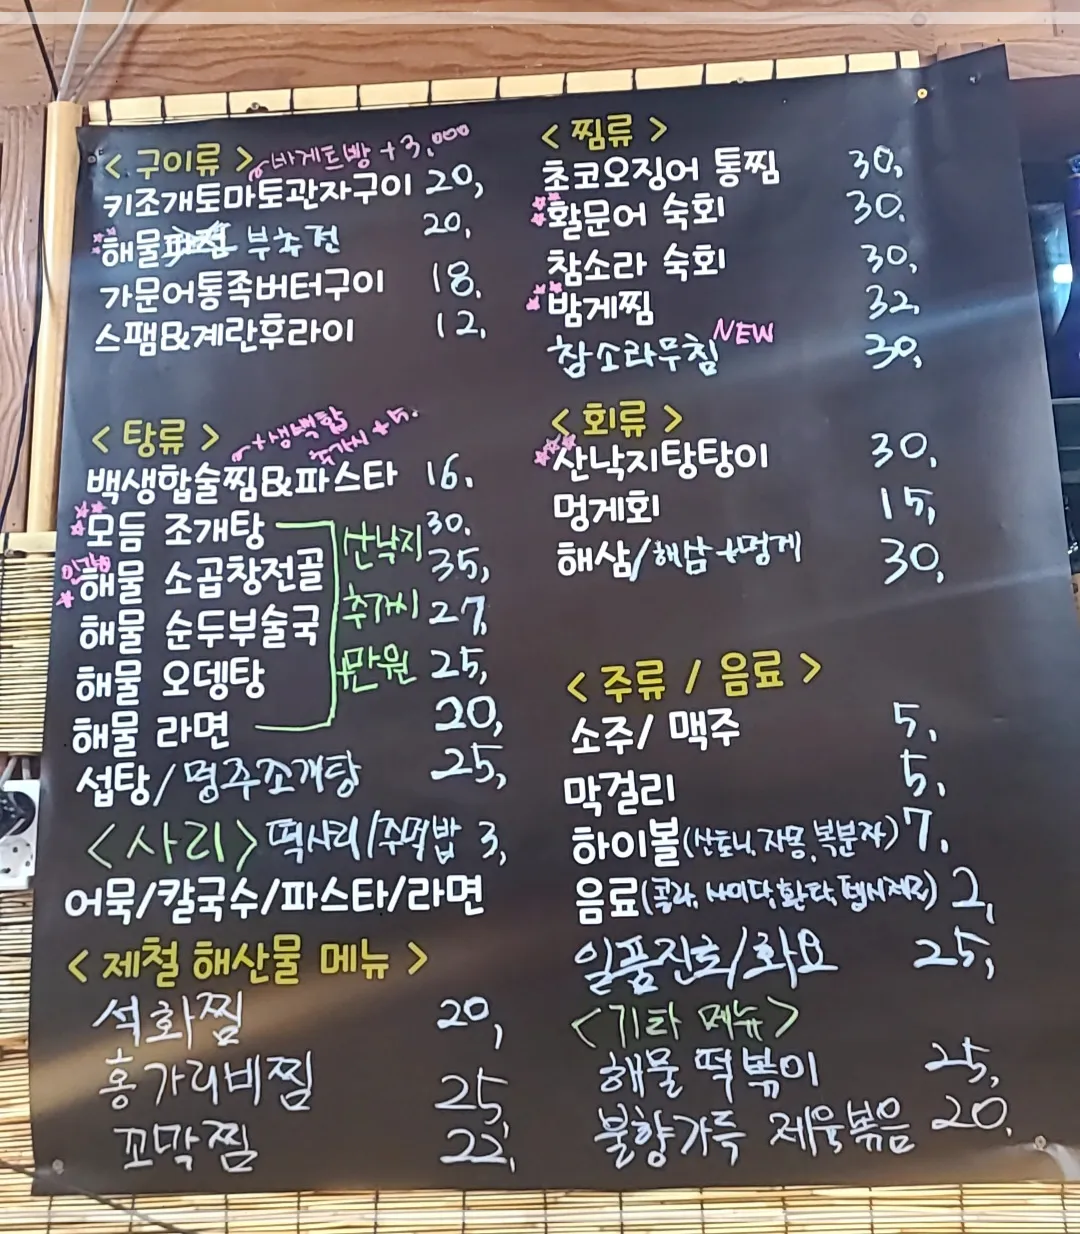 < 구이류 > 바게트빵 +3,000
키조개토마토관자구이 20,
해물파전 부추전 20,
가문어통족버터구이 18,
스팸&계란후라이 12,
< 탕류 > +생백합 추가시 +5.
백생합술찜&파스타 16,
모듬 조개탕 30.
해물 소곱창전골 35,
해물 순두부술국 27,
해물 오뎅탕 25,
해물 라면 20,
산낙지
추가시
+만원
섭탕/명주조개탕 25,
<사리> 떡사리/주먹밥 3,
어묵/칼국수/파스타/라면
< 제철 해산물 메뉴 >
석화찜 20,
홍가리비찜 25,
꼬막찜 22,
< 찜류 >
초코오징어 통찜 30,
활문어 숙회 30.
참소라 숙회 30,
밤게찜 32,
참소라무침 NEW 30,
< 회류 >
산낙지탕탕이 30,
멍게회 15,
해삼/해삼+멍게 30,
< 주류 / 음료 >
소주/ 맥주 5,
막걸리 5,
하이볼(산토니, 자몽, 복분자) 7,
음료(콜라, 사이다, 환타, 펩시제로) 2,
일품진로/화요 25,
<기타 메뉴>
해물 떡볶이 25,
불향가득 제육볶음 20,